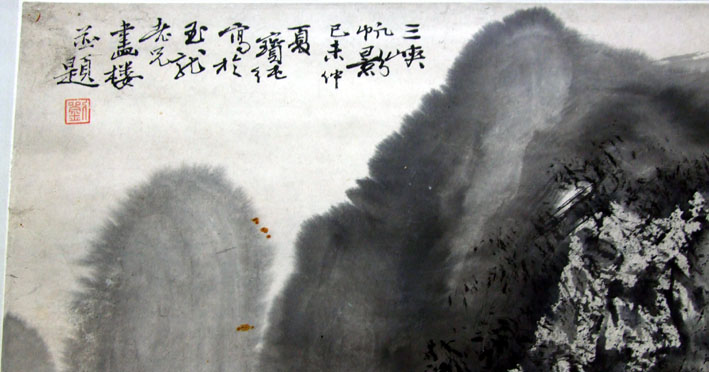 三峽
帆影
己未仲
夏
寶純
寫於
玉龍
老兄
畫樓
并題